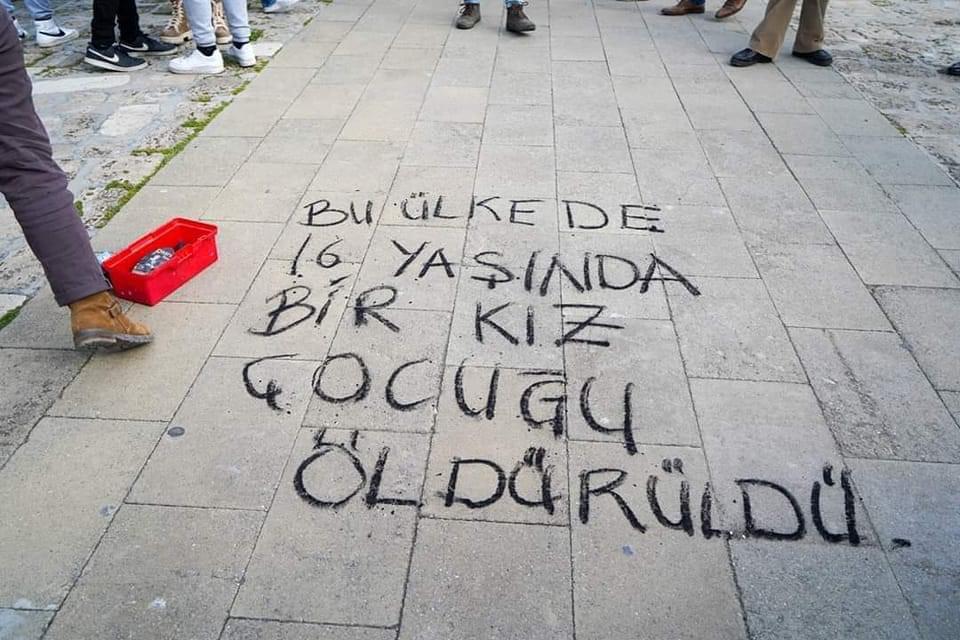 BU ÜLKEDE
16 YAŞINDA
BİR KIZ
ÇOCUĞU
ÖLDÜRÜLDÜ.